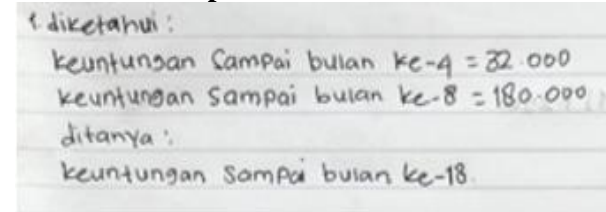 1. diketahui :
keuntungan Sampai bulan ke-4 = 32.000
keuntungan Sampai bulan ke-8 = 180.000
ditanya :
keuntungan Sampai bulan ke-18.